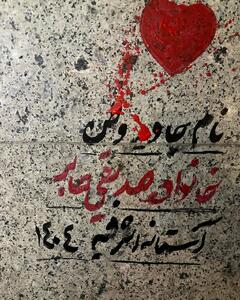 نام جاوید وطن
خانواده صدیقی صابر
آستانه اشرفیه ۱۴۰۴